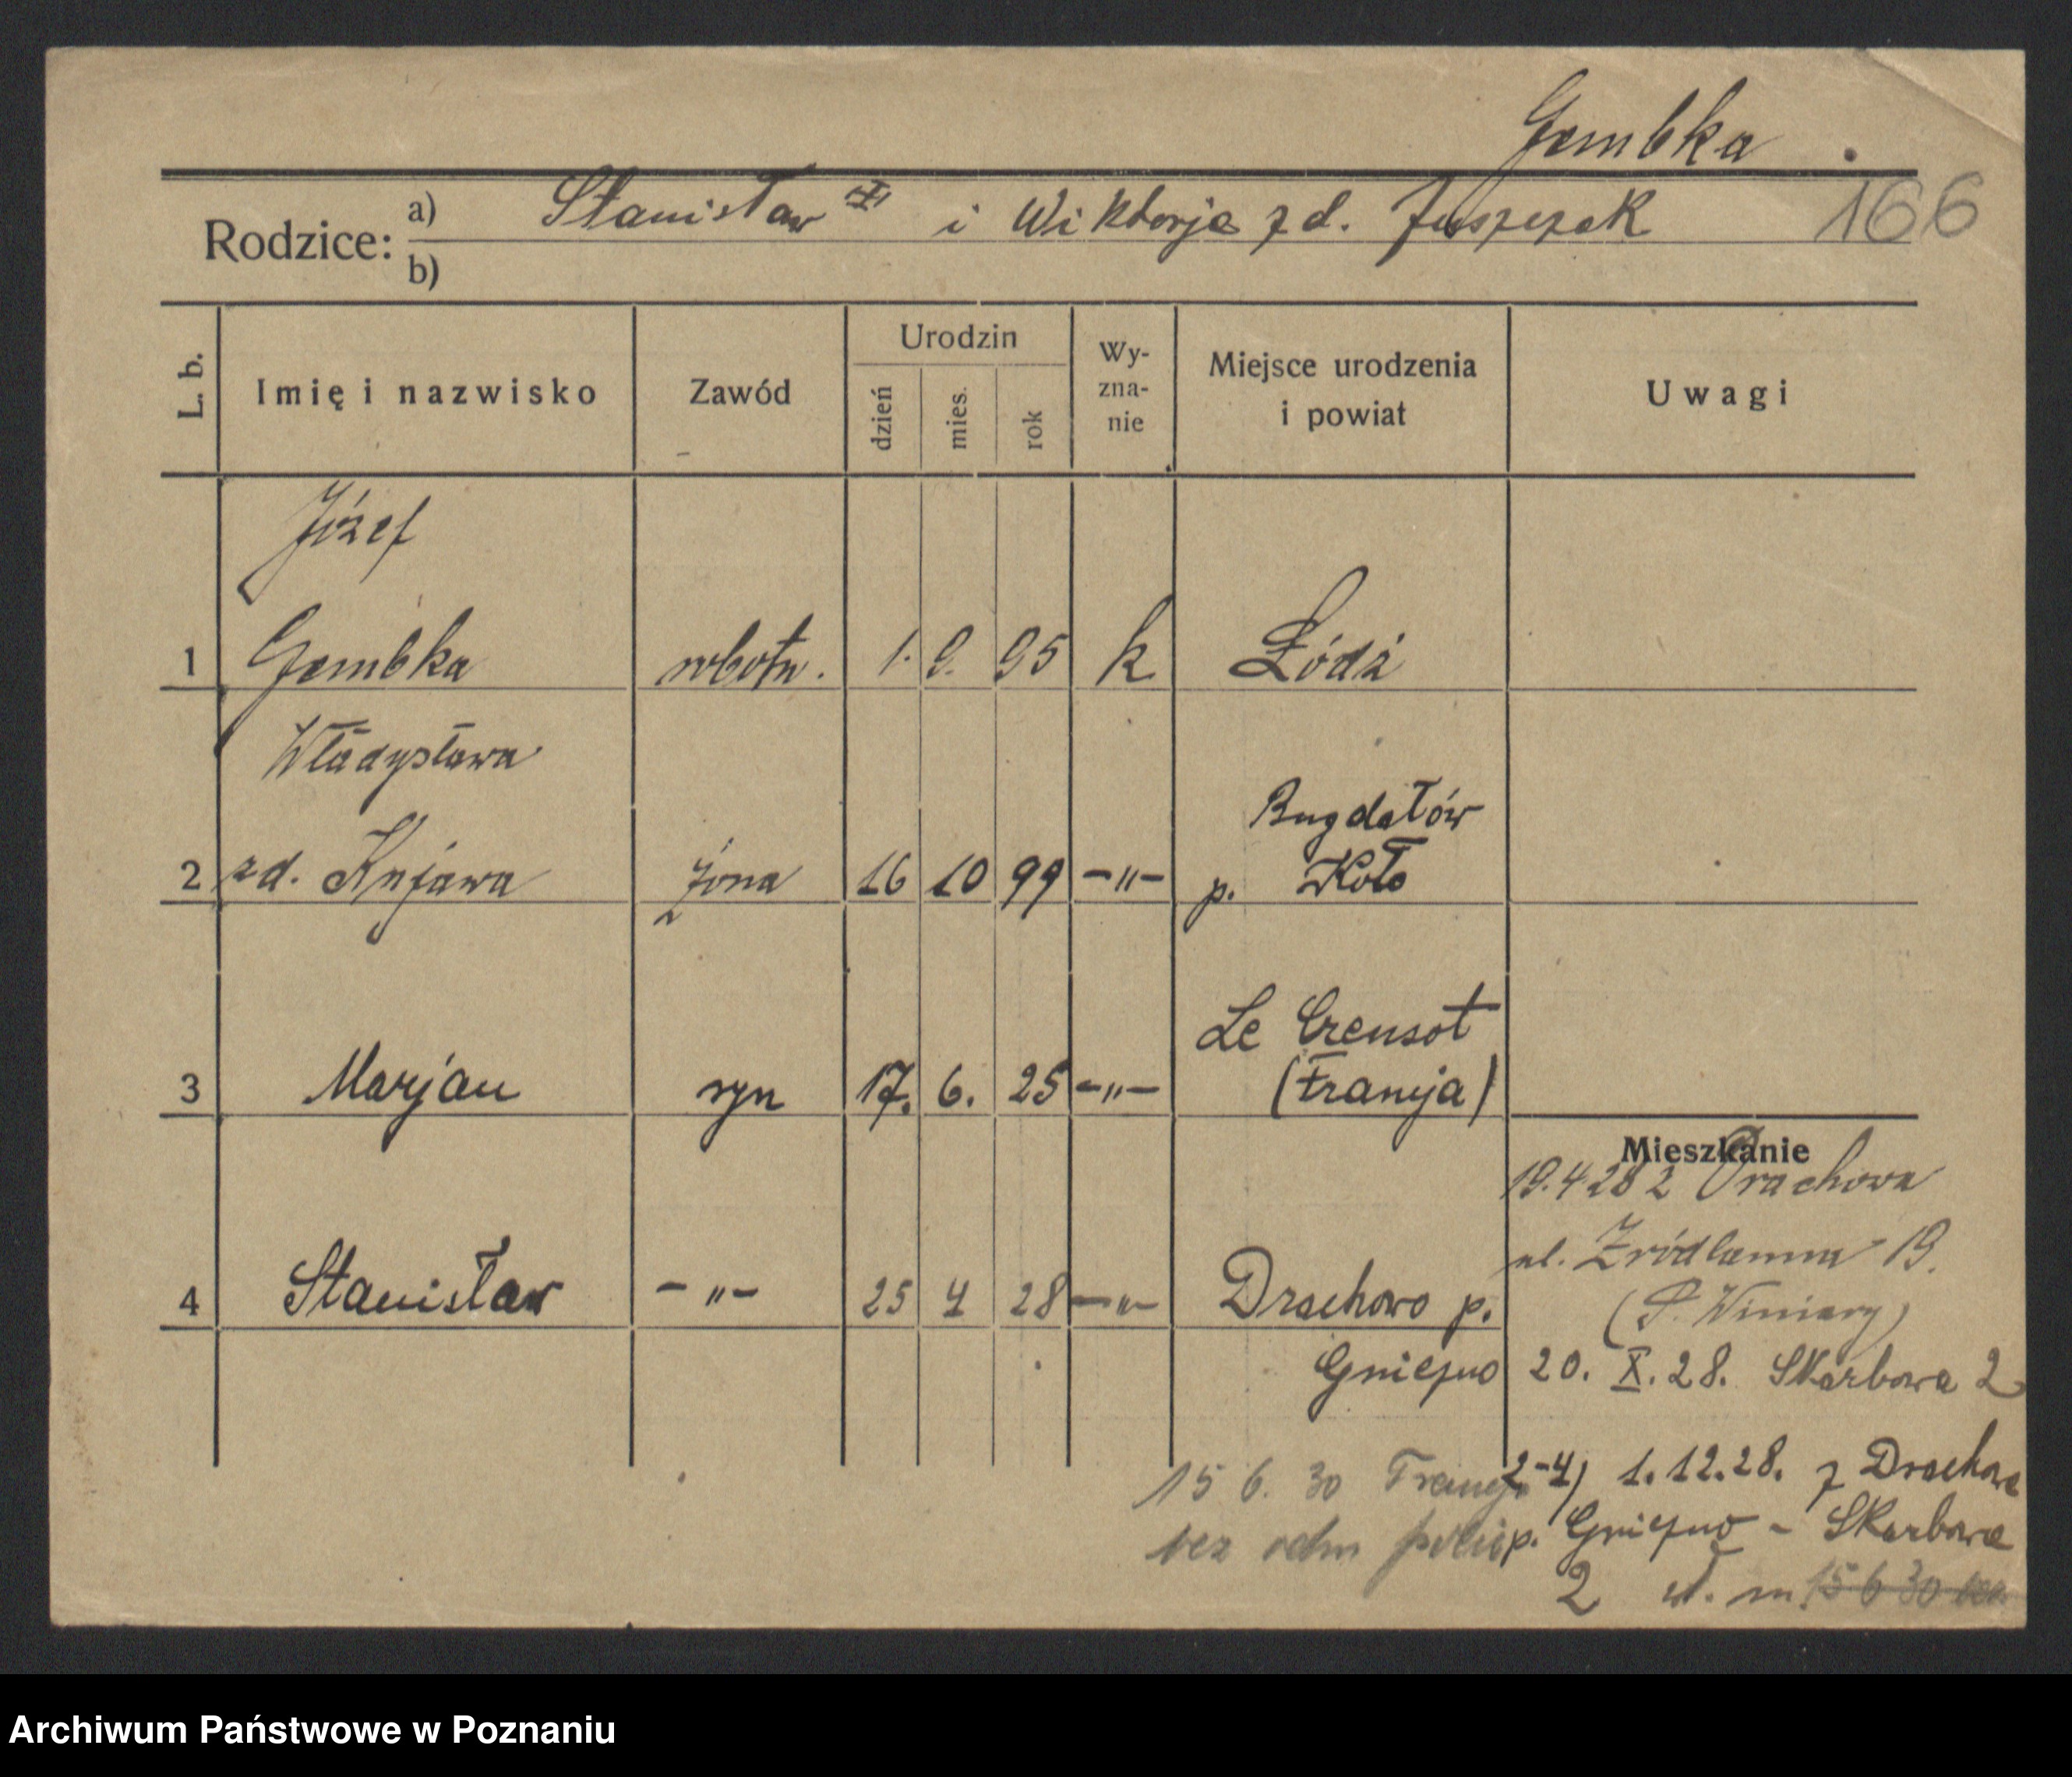 Gembka
166
Rodzice: a) Stanisław i Wiktorja z d. Juszczak
b)
L. b.
Imię i nazwisko
Zawód
Urodzin
dzień
mies.
rok
Wy-
zna-
nie
Miejsce urodzenia
i powiat
Uwagi
Józef
1 Gembka robotn. 1. 9. 95 k Łódź
Władysława
Bugdałów
2 zd. Kujawa żona 16 10 99 -"- p. Koło
Le Creusot
3 Marjan syn 17. 6. 25 -"- (Francja)
Mieszkanie
19.4 28 z Drachowa
ul. Źródlanna 19.
4 Stanisław -"- 25 4 28 -"- Drachowo p.
(P. Winiary)
Gniezno
20. X. 28. Skarbowa 2
2-4) 1.12.28. z Drachowa
15 6. 30 Francja
p. Gniezno - Skarbowa
bez odm
2 w. m. 15 6 30
Archiwum Państwowe w Poznaniu